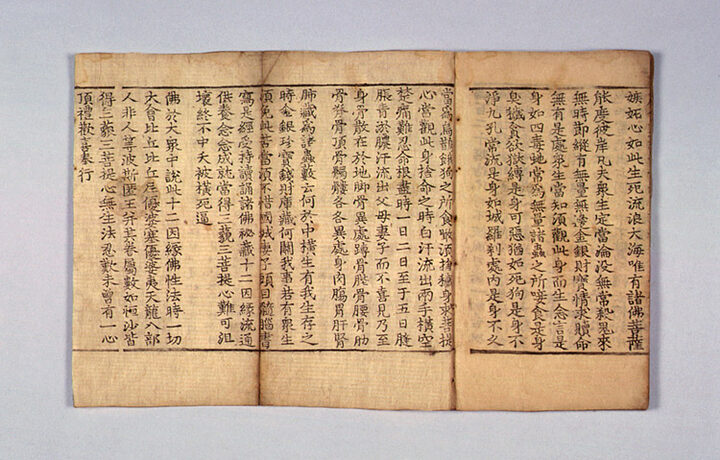 嫉妬心如此生死流浪大海唯有諸佛菩薩
能度彼岸凡夫衆生定當淪没無常殺鬼來
無時節縱有無量無邊金銀財寶情求贖命
無有是處衆生當知須觀此身而生念言是
身如四毒虵常為無量諸蟲之所唼食是身
臭穢貪欲獄縛是身可惡猶如死狗是身不
淨九孔常流是身如城羅刹處内是身不久
當為烏鵲餓狗之所食噉須捨穢身求菩提
心當觀此身捨命之時白汗流出兩手横空
楚痛難忍命根盡時一日二日至于五日膖
脹青淤膿汗流出父母妻子而不喜見乃至
身骨散在於地脚骨異處骨骨腰骨肋
骨脊骨頂骨髑髏各各異處身肉腸胃肝腎
肺藏為諸蟲藪云何於中横生有我生存之
時金銀珍寶錢財庫藏何關我事若有衆生
須免此苦當須不惜國城妻子頭目髓腦書
寫是經受持讀誦諸佛秘藏十二因縁流通
供養念念成就當得三藐三菩提心難可沮
壞終不中夭被横死逼
佛於大衆中說此十二因縁佛性法時一切
大會比丘比丘尼優婆塞優婆夷天龍八部
人非人等波斯匿王并其眷屬數如恒沙皆
得三藐三菩提心無生法忍歎未曾有一心
頂禮歡喜奉行